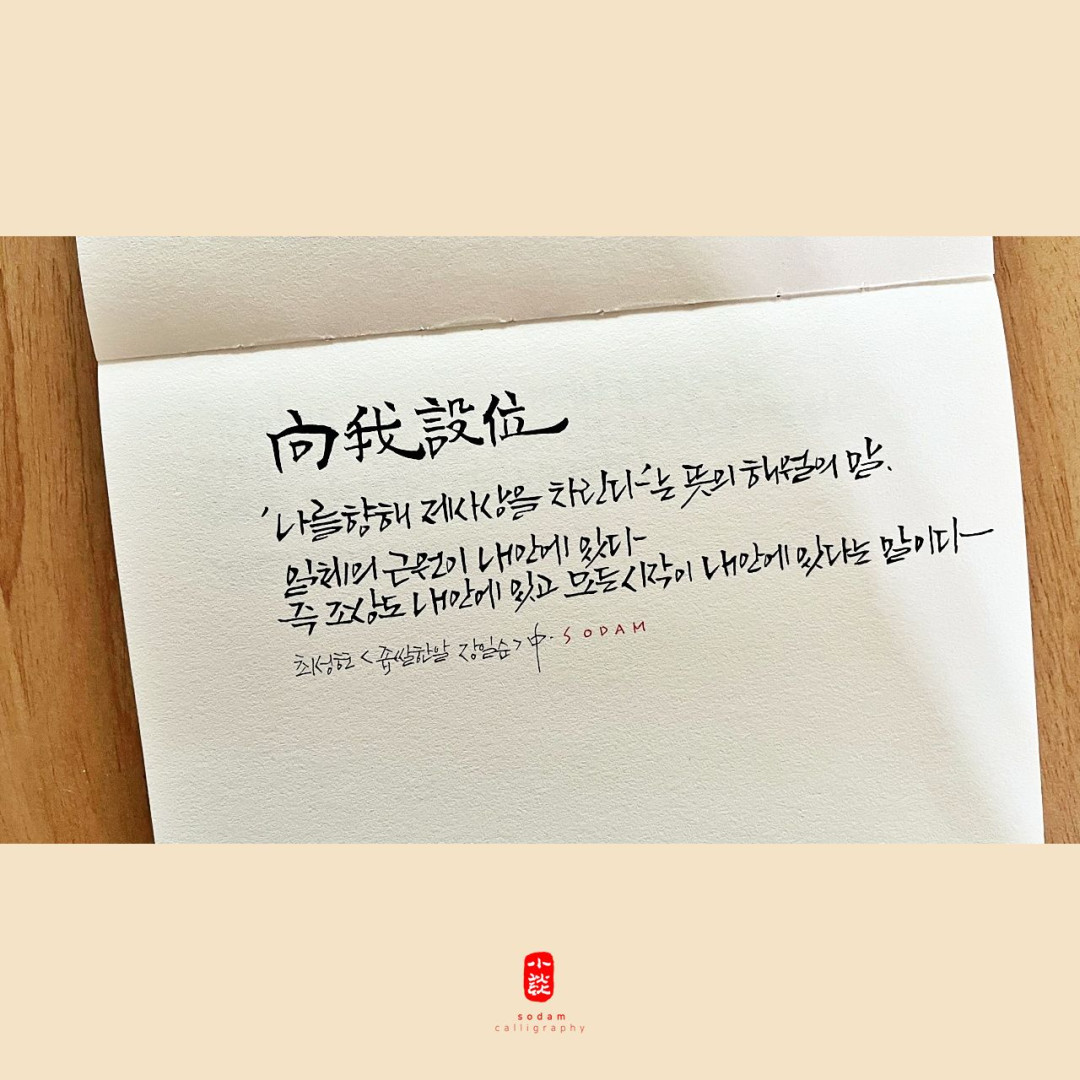 向我設位
'나를향해 제사상을 차린다'는 뜻의 해월의 말.
일체의 근원이 내안에 있다
즉 조상도 내안에 있고 모든시작이 내안에 있다는 말이다
최성현 <좁쌀한알 장일순> 中. SODAM
小談
sodam
calligraphy